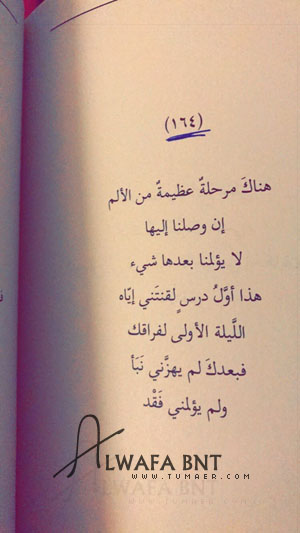 (١٦٤)
هناكَ مرحلةٌ عظيمةٌ من الألم
إن وصلنا إليها
لا يؤلمنا بعدها شيء
هذا أوَّلُ درسٍ لقنتَني إيّاه
اللَّيلة الأولى لفراقك
فبعدكَ لم يهزَّني نَبَأ
ولم يؤلمني فَقْد
ALWAFA BNT
WWW.TUMAER.COM